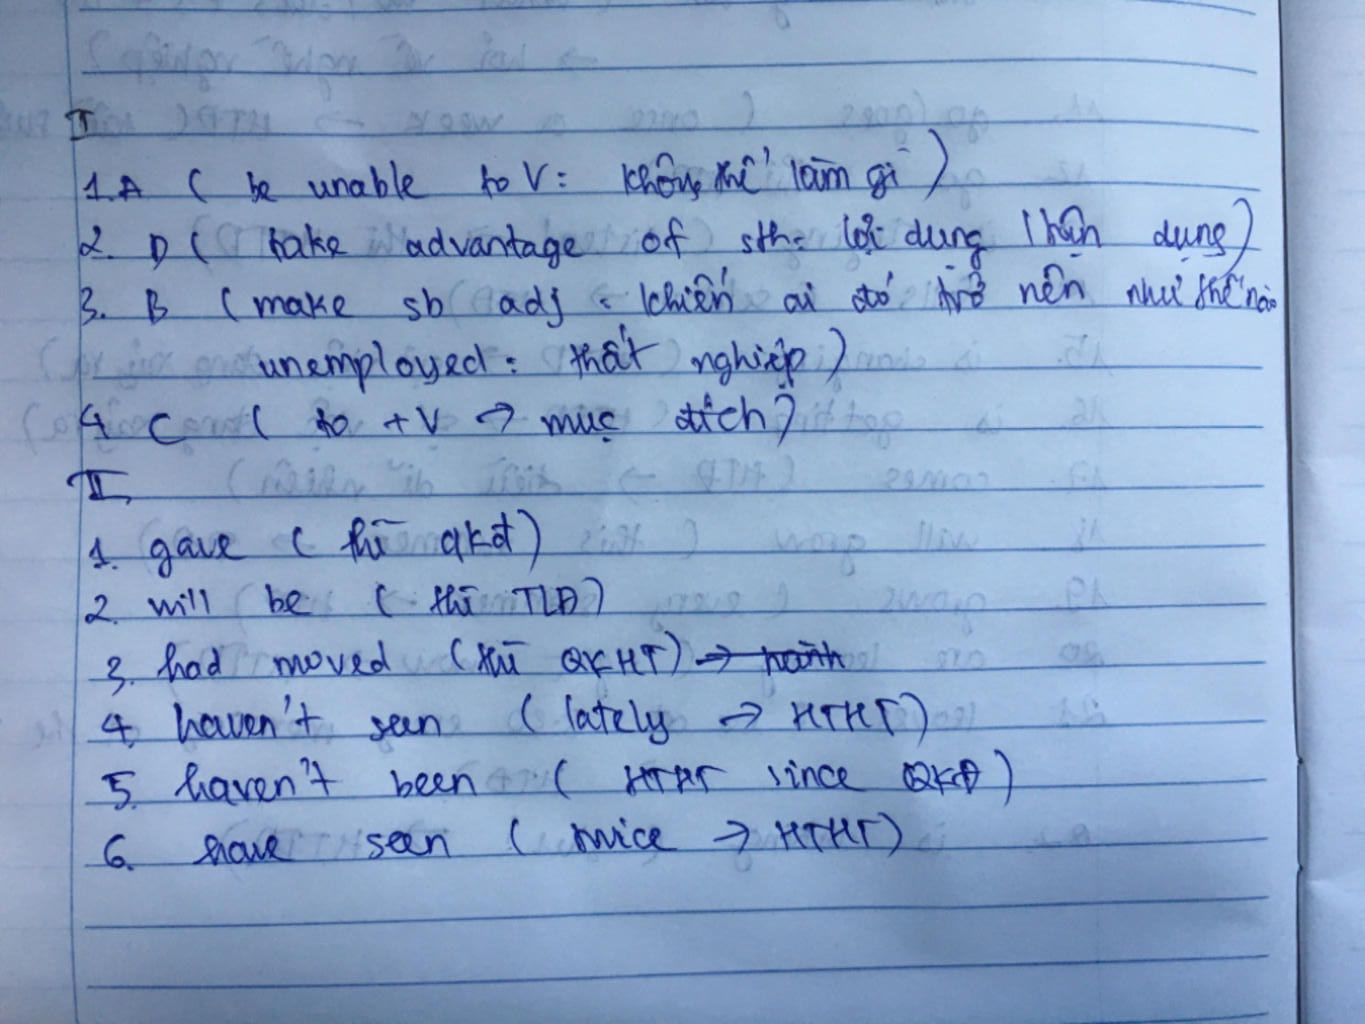 I
1. A ( be unable to V : không thể làm gì )
2. D ( take advantage of sth = lợi dụng / tận dụng )
3. B ( make sb adj = khiến ai đó trở nên như thế nào
unemployed : thất nghiệp )
4 C ( to + V → mục đích )
II,
1. gave ( thì qkđ )
2. will be ( thì TLĐ )
3. had moved ( thì QKHT ) →
4. haven't seen ( lately → HTHT )
5. haven't been ( HTHT since QKĐ )
6. have seen ( twice → HTHT )